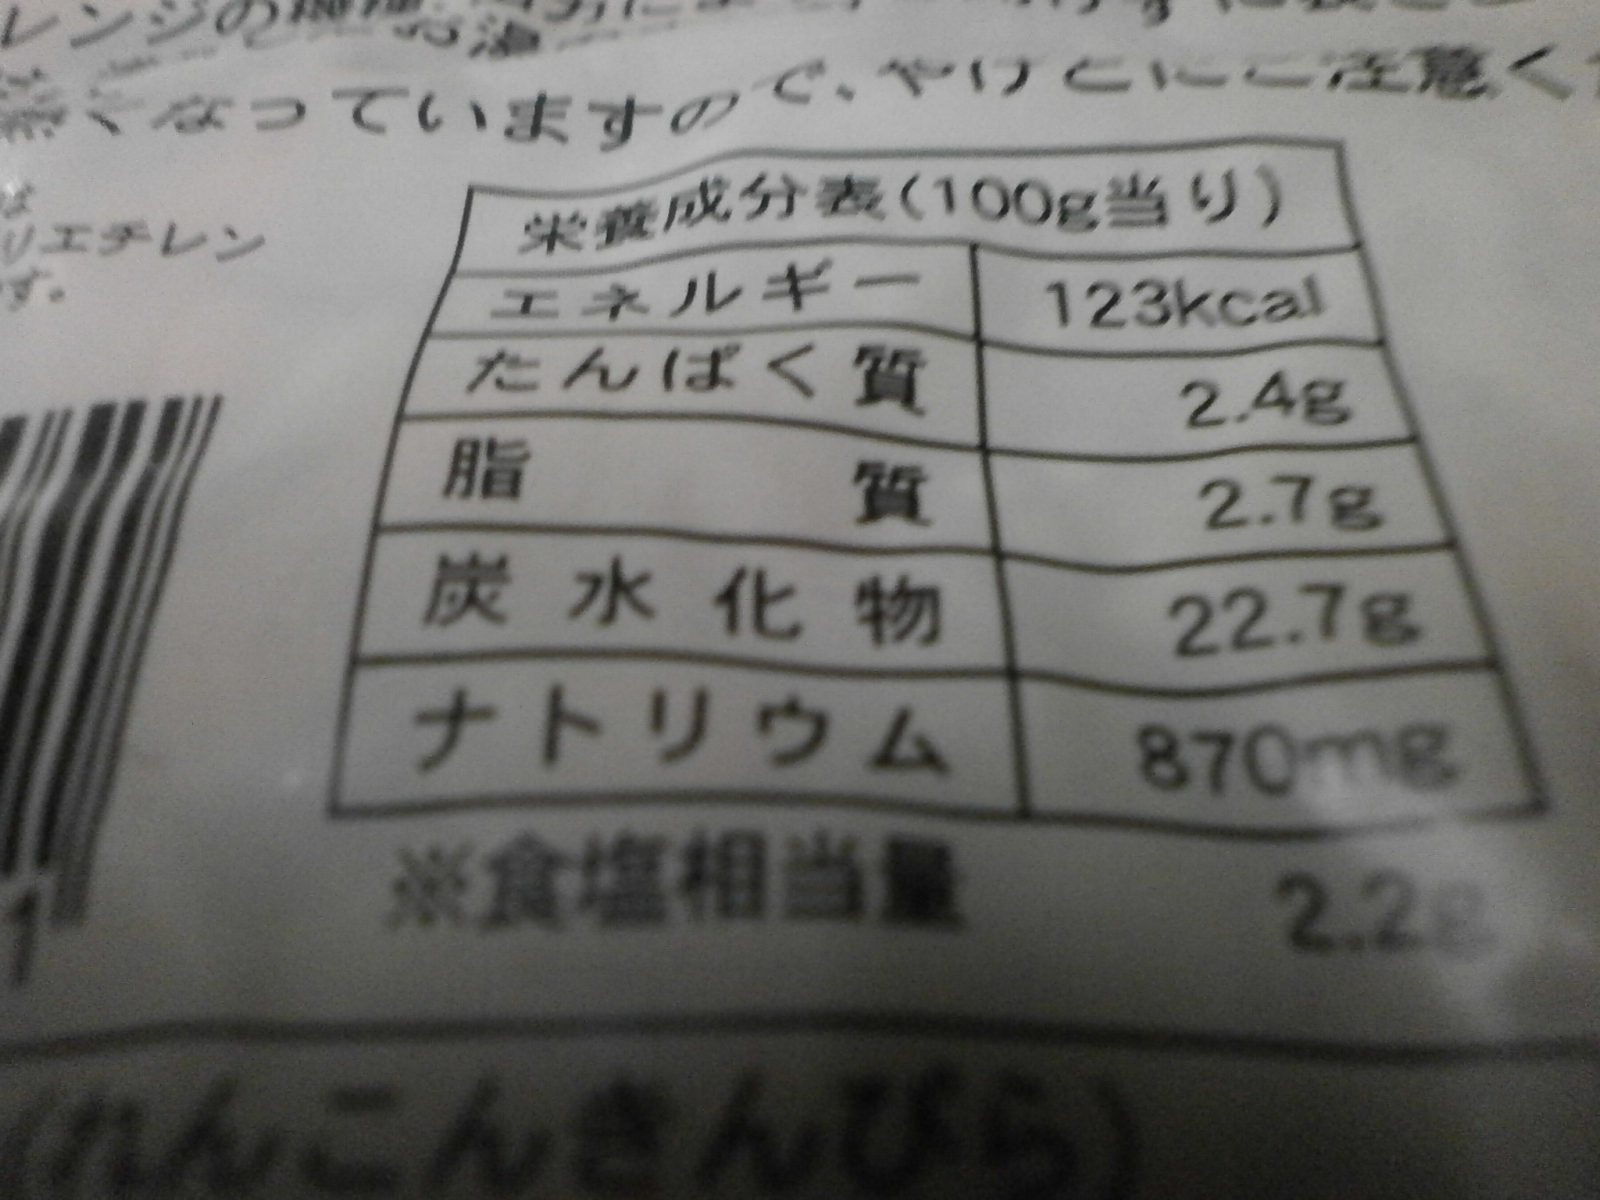 レンジの機種
お湯
熱くなっていますので、やけどにご注意く
エチレン
す。
栄養成分表(100g当り)
エネルギー 123kcal
たんぱく質 2.4g
脂質 2.7g
炭水化物 22.7g
ナトリウム 870mg
※食塩相当量 2.2g
1
(れんこんきんぴら)